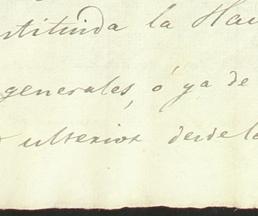 stituida la Hau
generales, ó ya de
ulterior desde lo